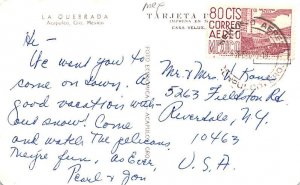 MEX
LA QUEBRADA
Acapulco, Gro. Mexico
TARJETA P
CARA VELOZ
80 CTS
CORREO
AEREO
MEXICO
Hi -
We want you to
come on down. A
good vacation with-
out snow! Come
and watch the pelicans,
They're fun, as Ever,
Pearl & Jon
Mr. & Mrs. H. Kane
5263 Fieldston Rd
Riverdale, N.Y.
10463
U.S.A.